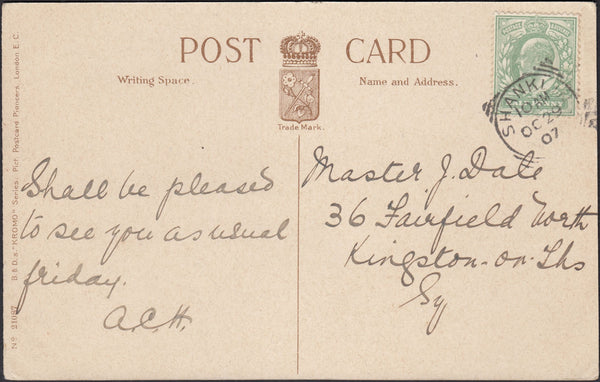 POST CARD
Writing Space.
Name and Address.
Trade Mark.
SHANKL
OC 29
07
PENNY
Shall be pleased
to see you as usual
friday.
A.C.H.
Master J. Dale
36 Fairfield North
Kingston-on-Ths
Sy
No 21097 B. & D.s. "KROMO" Series. Pict. Postcard Pioneers, London. E.C.